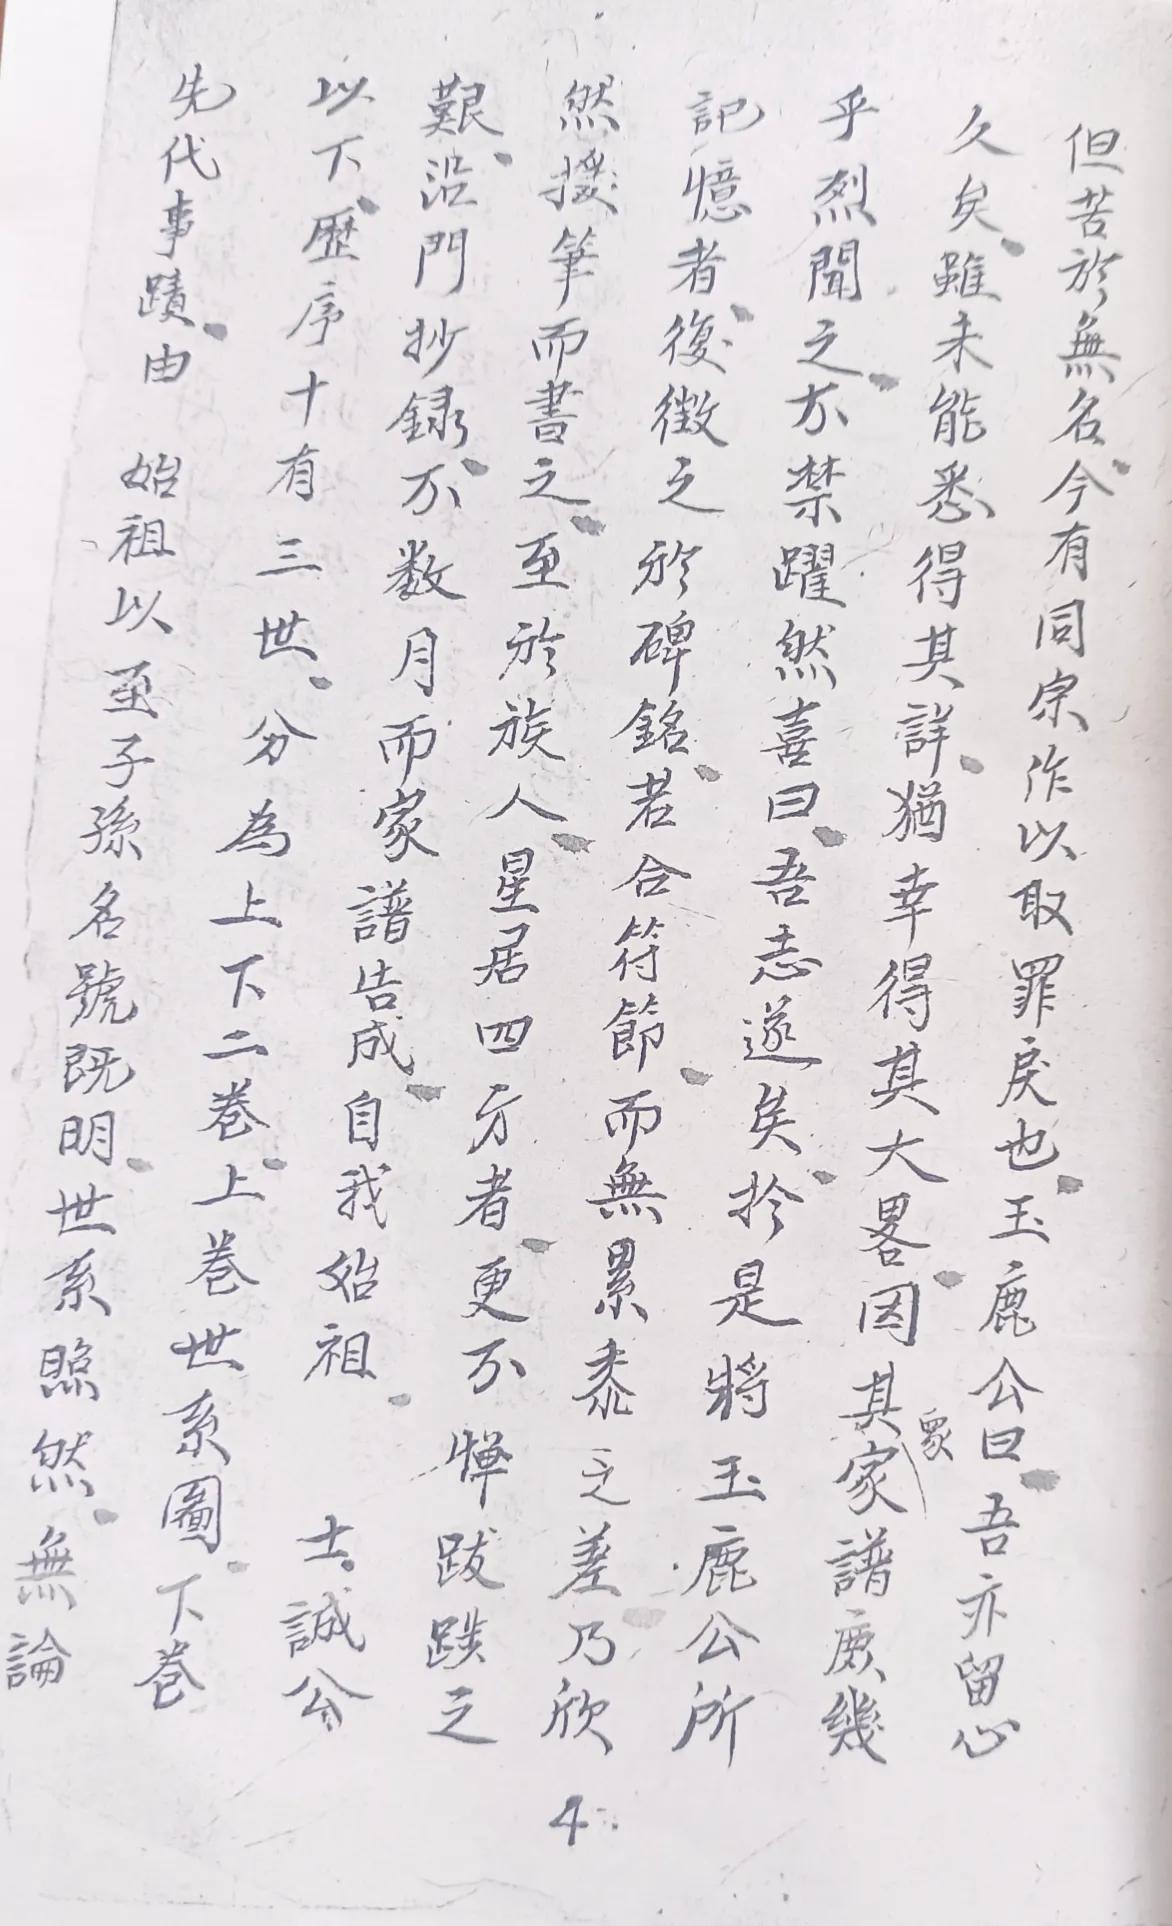 但苦於無名今有同宗作以取罪戾也玉鹿公曰吾亦留心
久矣雖未能悉得其詳猶幸得其大畧因其家譜庶幾
衆
乎烈聞之不禁躍然喜曰吾志遂矣於是將玉鹿公所
記憶者復徵之於碑銘若合符節而無累黍之差乃欣
然援筆而書之至於族人星居四方者更不憚跋踄之
艱沿門抄録不数月而家譜告成自我始祖 士誠公
以下歷序十有三世分為上下二卷上卷世系圖下卷
先代事蹟由 始祖以至子孫名號既明世系照然無論
4